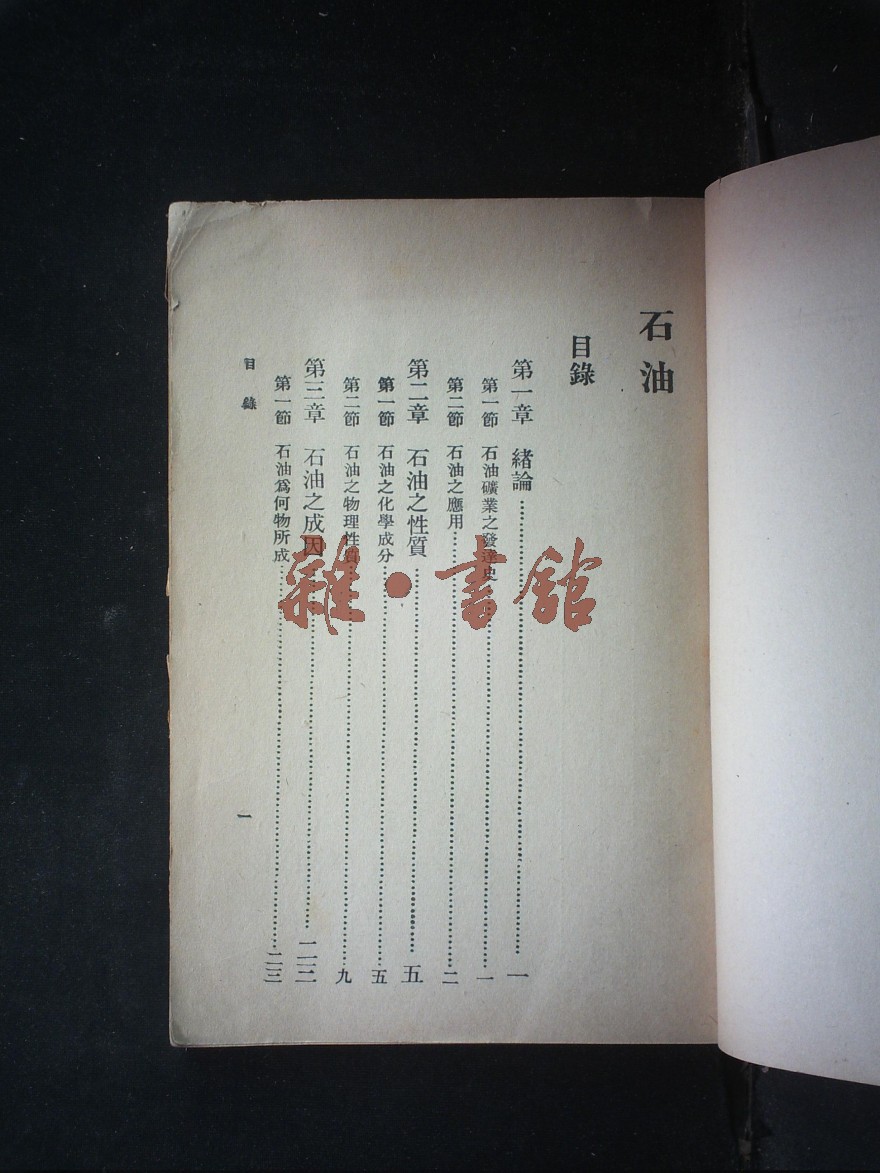 石油
目錄
第一章 緒論……一
第一節 石油礦業之發達史……一
第二節 石油之應用……二
第二章 石油之性質……五
第一節 石油之化學成分……五
第二節 石油之物理性質……九
第三章 石油之成因……二三
第一節 石油爲何物所成……二三
目錄 一
雜·書館